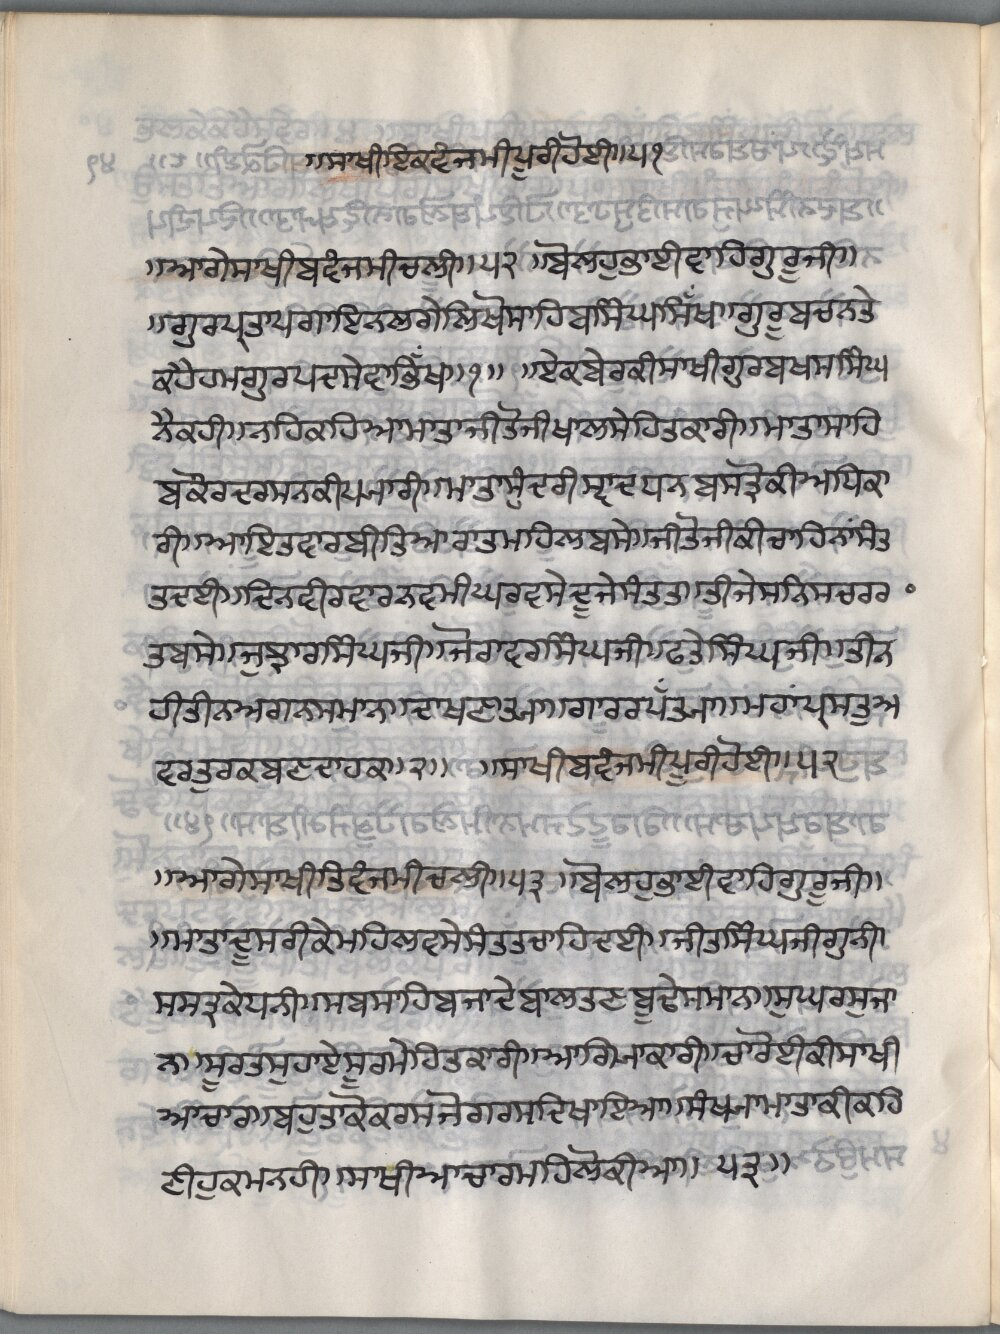 ॥ਸਾਖੀਇਕਵੰਜਮੀਪੂਰੀਹੋਈ॥੫੧
॥ਆਗੇਸਾਖੀਬਵੰਜਮੀਚਲੀ॥੫੨॥ਬੋਲਹੁਭਾਈਵਾਹਿਗੁਰੂਜੀ॥
॥ਗੁਰਪ੍ਰਤਾਪਗਾਇਨਲਗੇਲਿਖੋਸਾਹਿਬਸਿੰਘਸਿੱਖਾ॥ਗੁਰੂਬਚਨਤੇ
ਕਹੈਹਮਗੁਰਪਦਸੇਵਾਭਿੱਖਾ॥੧॥ ॥ਏਕਬੇਰਕੀਸਾਖੀਗੁਰਬਖਸਸਿੰਘ
ਨੈਕਹੀ॥ਨਹਿਕਹਿਆਮਾਤਾਜੀਤੋਜੀਖਾਲਸੇਹਿਤਕਾਰੀ॥ਮਾਤਾਸਾਹਿ
ਬਕੌਰਦਰਸਨਕੀਪਿਆਰੀ॥ਮਾਤਾਸੁੰਦਰੀਸ੍ਵਾਦਪਨਬਸਤ੍ਰੋਕੀਅਧਿਕਾ
ਰੀ॥ਆਇਤਵਾਰਬੀਤਿਆਰਾਤਮਹਿਲਬਸੇ॥ਜੀਤੋਜੀਕੀਚਾਹਿਨਾਸੰਤ
ਤਦਈ॥ਦਿਨਵੀਰਵਾਰਨਵਮੀਘਰਵਸੇਦੂਜੇਸੰਤਤਾ॥ਤੀਜੇਸਨਿਸਚਰਰ
ਤਬਸੇ॥ਜੁਝਾਰਸਿੰਘਜੀ॥ਜੋਰਾਵਰਸਿੰਘਜੀ॥ਫਤੇਸਿੰਘਜੀ॥ਤੀਨ
ਹੀਤੀਨਅਗਨਸਮਾਨ॥ਦਾਖਣਾਤ੍ਰਆ॥ਗਾਰਰਪੱਤ੍ਰਆ॥ਮਹਾਂਪ੍ਰਸਤੁਅ
ਵਰਤੁਰਕਬਣਦਾਹਕਾ॥੨॥ ॥ਸਾਖੀਬਵੰਜਮੀਪੂਰੀਹੋਈ॥੫੨
॥ਆਗੇਸਾਖੀਤਿਵੰਜਮੀਚਲੀ॥੫੩॥ਬੋਲਹੁਭਾਈਵਾਹਿਗੁਰੂਜੀ॥
॥ਮਾਤਾਦੂਸਰੀਕੇਮਹਿਲਵਸੇਸੰਤਤਚਾਹਿਦਈ॥ਜੀਤਸਿੰਘਜੀਗੁਨੀ
ਸਸਤ੍ਰਕੇਧਨੀ॥ਸਬਸਾਹਿਬਜਾਦੇਬਾਲਤਣਬੂਢੇਸਮਾਨ॥ਸੁਘਰਸੁਜਾ
ਨ॥ਸੂਰਤਸੁਹਾਏਸੂਰਮੇਹਿਤਕਾਰੀ॥ਆਗਿਆਕਾਰੀ॥ਚਾਰੋਈਕੀਸਾਖੀ
ਆਚਾਰ॥ਬਹੁਤਾਕੋਕਰਮਜੋਗਰਸਦਿਖਾਇਆ॥ਸੰਖਿਆਮਾਤਾਕੀਕਹਿ
ਣੀਹੁਕਮਨਹੀ॥ਸਾਖੀਆਚਾਰਮਹਿਲੋਕੀਆ॥ ੫੩॥